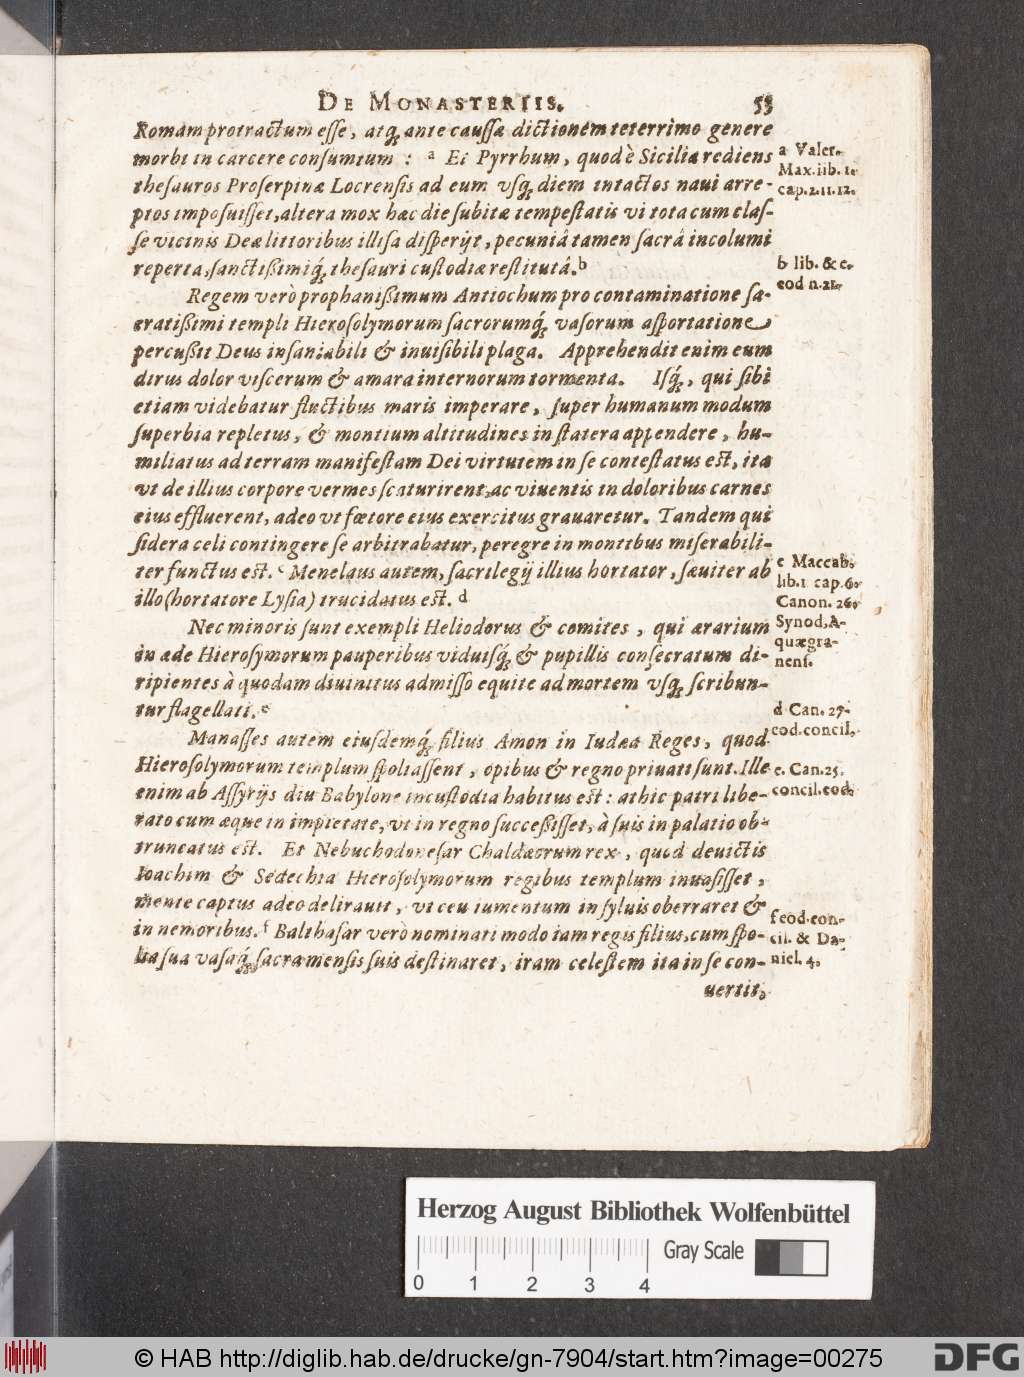 DE MONASTERIIS. 53
Romam protractum esse, atq́; ante caussæ dictionem teterrimo genere
morbi in carcere consumtum : a Et Pyrrhum, quod è Sicilia rediens
thesauros Proserpinæ Locrensis ad eum vsq́; diem intactos naui arre-
ptos imposuisset, altera mox hac die subitæ tempestatis vi tota cum clas-
se vicinis Deæ littoribus illisa disperijt, pecuniâ tamen sacrâ incolumi
reperta, sanctißimiq́; thesauri custodiæ restitutâ. b
Regem verò prophanißimum Antiochum pro contaminatione sa-
cratißimi templi Hierosolymorum sacrorumq́; vasorum asportatione
percußit Deus insaniabili & inuisibili plaga. Apprehendit enim eum
dirus dolor viscerum & amara internorum tormenta. Isq́;, qui sibi
etiam videbatur fluctibus maris imperare, super humanum modum
superbia repletus, & montium altitudines in statera appendere, hu-
miliatus ad terram manifestam Dei virtutem in se contestatus est, ita
vt de illius corpore vermes scaturirent, ac viuentis in doloribus carnes
eius effluerent, adeo vt fœtore eius exercitus grauaretur. Tandem qui
sidera celi contingere se arbitrabatur, peregre in montibus miserabili-
ter functus est. c Menelaus autem, sacrilegij illius hortator, sæuiter ab
illo (hortatore Lysia) trucidatus est. d
Nec minoris sunt exempli Heliodorus & comites, qui ærarium
in æde Hierosymorum pauperibus viduisq́; & pupillis consecratum di-
ripientes à quodam diuinitus admisso equite ad mortem vsq́; scribun-
tur flagellati. e
Manasses autem eiusdemq́; filius Amon in Iudæa Reges, quod
Hierosolymorum templum spoliassent, opibus & regno priuati sunt. Ille
enim ab Assyrijs diu Babylone in custodia habitus est: at hic patri libe-
rato cum æque in impietate, vt in regno successisset, à suis in palatio ob-
truncatus est. Et Nebuchodonosar Chaldæorum rex, quod deuictis
Ioachim & Sedechia Hierosolymorum regibus templum inuasisset,
mente captus adeo delirauit, vt ceu iumentum in syluis oberraret &
in nemoribus. f Balthasar verò nominati modo iam regis filius, cum spo-
lia sua vasaq́; sacra mensis suis destinaret, iram celestem ita in se con-
uertit,
a Valer.
Max. lib. 1.
cap. 2. 11. 12.
b lib. & c.
eod n. 21.
c Maccab.
lib. 1 cap. 6.
Canon. 26.
Synod. A-
quægra-
nens.
d Can. 27.
eod. concil.
e. Can. 25.
concil. eod.
f eod. con-
cil. & Da-
niel. 4.
Herzog August Bibliothek Wolfenbüttel
0 1 2 3 4
Gray Scale
© HAB http://diglib.hab.de/drucke/gn-7904/start.htm?image=00275
DFG